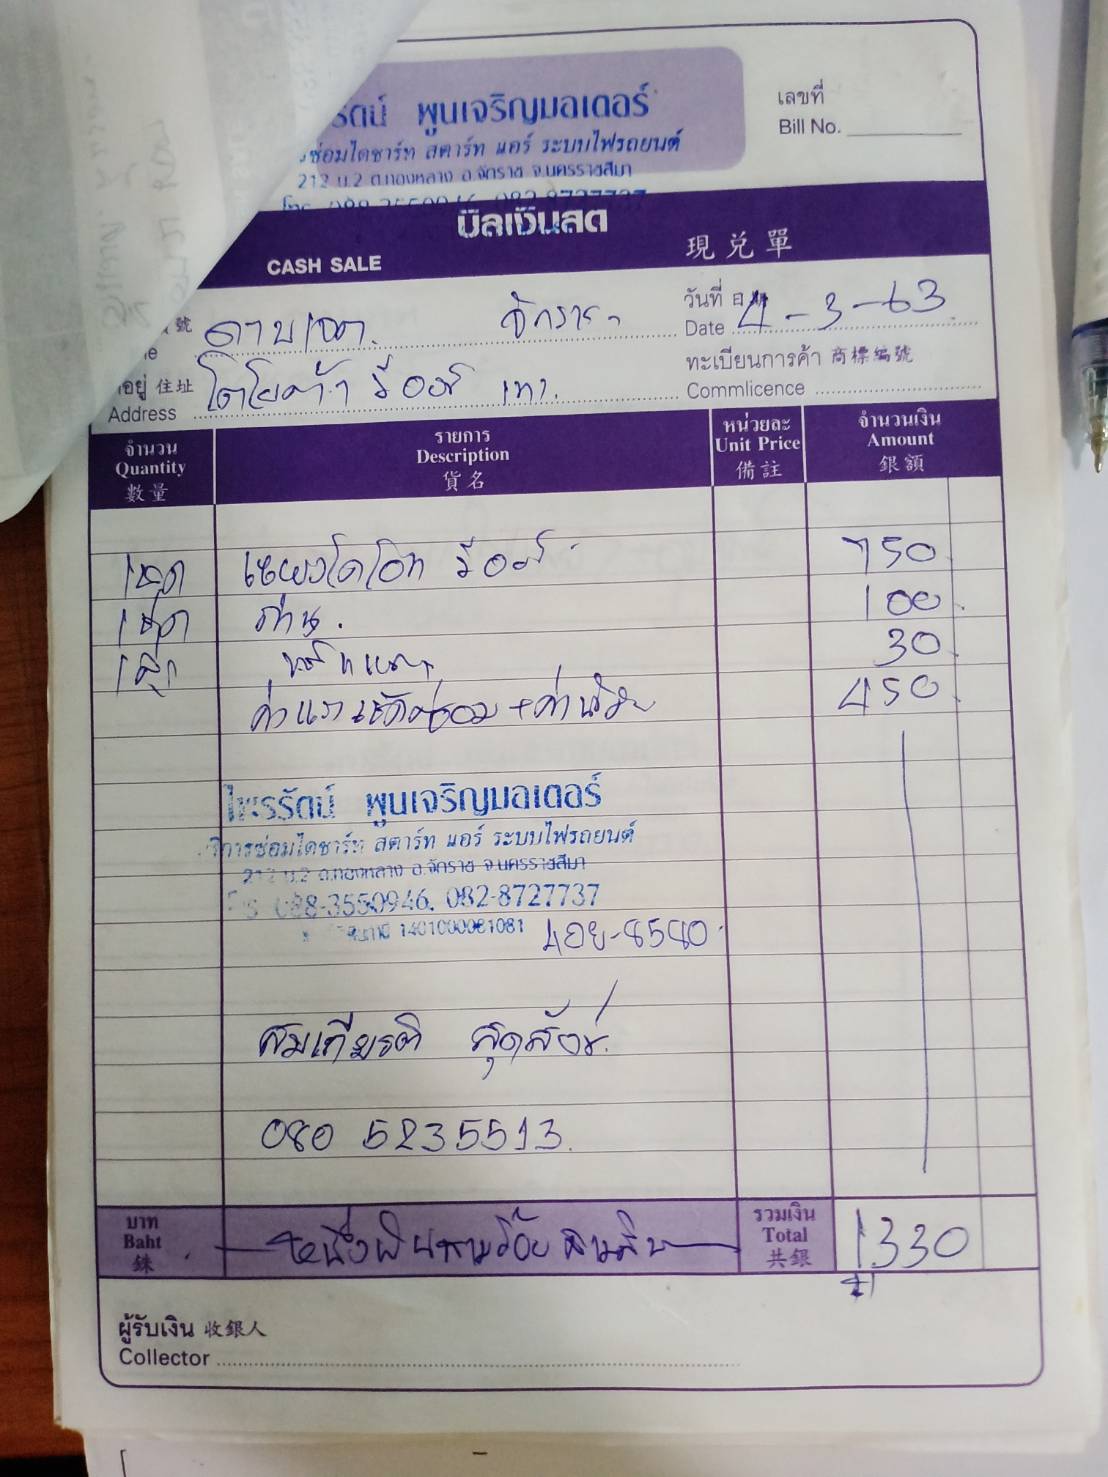 รัตน์ พูนเจริญมอเตอร์
ซ่อมไดชาร์ท สตาร์ท แอร์ ระบบไฟรถยนต์
212 ม.2 ต.ทองหลาง อ.จักราช จ.นครราชสีมา
โทร 088-3550946 082-8727737
เลขที่
Bill No.
บิลเงินสด
CASH SALE 現兑單
號 จักราช
วันที่ 日期
Date 4-3-63
อยู่ 住址 โตโยต้า วีออส เทา
Address
ทะเบียนการค้า 商標編號
Commlicence
จำนวน
Quantity
數量
รายการ
Description
貨名
หน่วยละ
Unit Price
備註
จำนวนเงิน
Amount
銀額
1ชุด วีออส 750
1ชุด ถ่าน. 100
30
ค่าแรง 450
ไพรรัตน์ พูนเจริญมอเตอร์
ริการซ่อมไดชาร์ท สตาร์ท แอร์ ระบบไฟรถยนต์
212 ม.2 ต.ทองหลาง อ.จักราช จ.นครราชสีมา
088-3550946, 082-8727737
8580
สมเกียรติ
080 5235513.
บาท
Baht
銖
หนึ่งพันสามร้อยสามสิบ
รวมเงิน
Total
共銀
1330
ผู้รับเงิน 收銀人
Collector